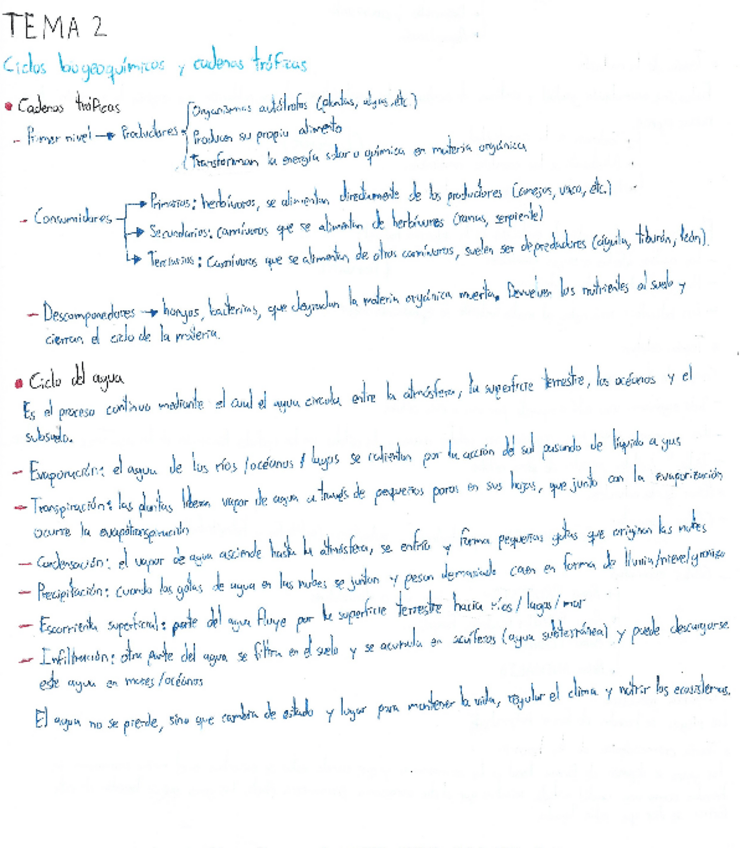 TEMA 2
Ciclos biogeoquímicos y cadenas tróficas
• Cadenas tróficas
- Primer nivel → Productores { Organismos autótrofos (plantas, algas, etc)
Producen su propio alimento
Transforman la energía solar o química en materia orgánica
- Consumidores → Primarios: herbívoros, se alimentan directamente de los productores (conejos, vaca, etc.)
→ Secundarios: carnívoros que se alimentan de herbívoros (ranas, serpiente)
→ Terciarios: Carnívoros que se alimentan de otros carnívoros, suelen ser depredadores (águila, tiburón, león).
- Descomponedores → hongos, bacterias, que degradan la materia orgánica muerta. Devuelven los nutrientes al suelo y
cierran el ciclo de la materia.
• Ciclo del agua
Es el proceso continuo mediante el cual el agua circula entre la atmósfera, la superficie terrestre, los océanos y el
subsuelo.
- Evaporación: el agua de los ríos /océanos / lagos se calientan por la acción del sol pasando de líquido a gas
- Transpiración: las plantas liberan vapor de agua a través de pequeños poros en sus hojas, que junto con la evaporización
ocurre la evapotranspiración
- Condensación: el vapor de agua asciende hasta la atmósfera, se enfría y forma pequeñas gotas que originan las nubes
- Precipitación: cuando las gotas de agua en las nubes se juntan y pesan demasiado caen en forma de lluvia/nieve/granizo
- Escorrentía superficial: parte del agua fluye por la superficie terrestre hacia ríos/lagos/mar
- Infiltración: otra parte del agua se filtra en el suelo y se acumula en acuíferos (agua subterránea) y puede descargarse
este agua en mares/océanos
El agua no se pierde, sino que cambia de estado y lugar para mantener la vida, regular el clima y nutrir los ecosistemas.